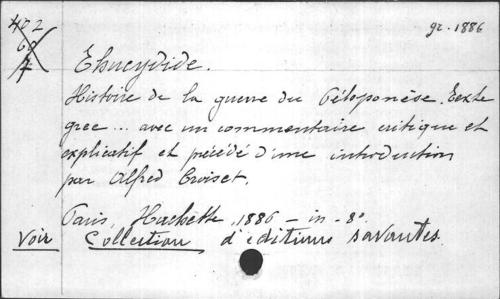 402 gr. 1886
Thucydide.
Histoire de la guerre du Péloponèse. Texte
grec ... avec un commentaire critique et
explicatif et précédé d'une introduction
par Alfred Croiset.
Paris, Hachette, 1886 – in-8°.
Voir Collection d'éditions savantes.